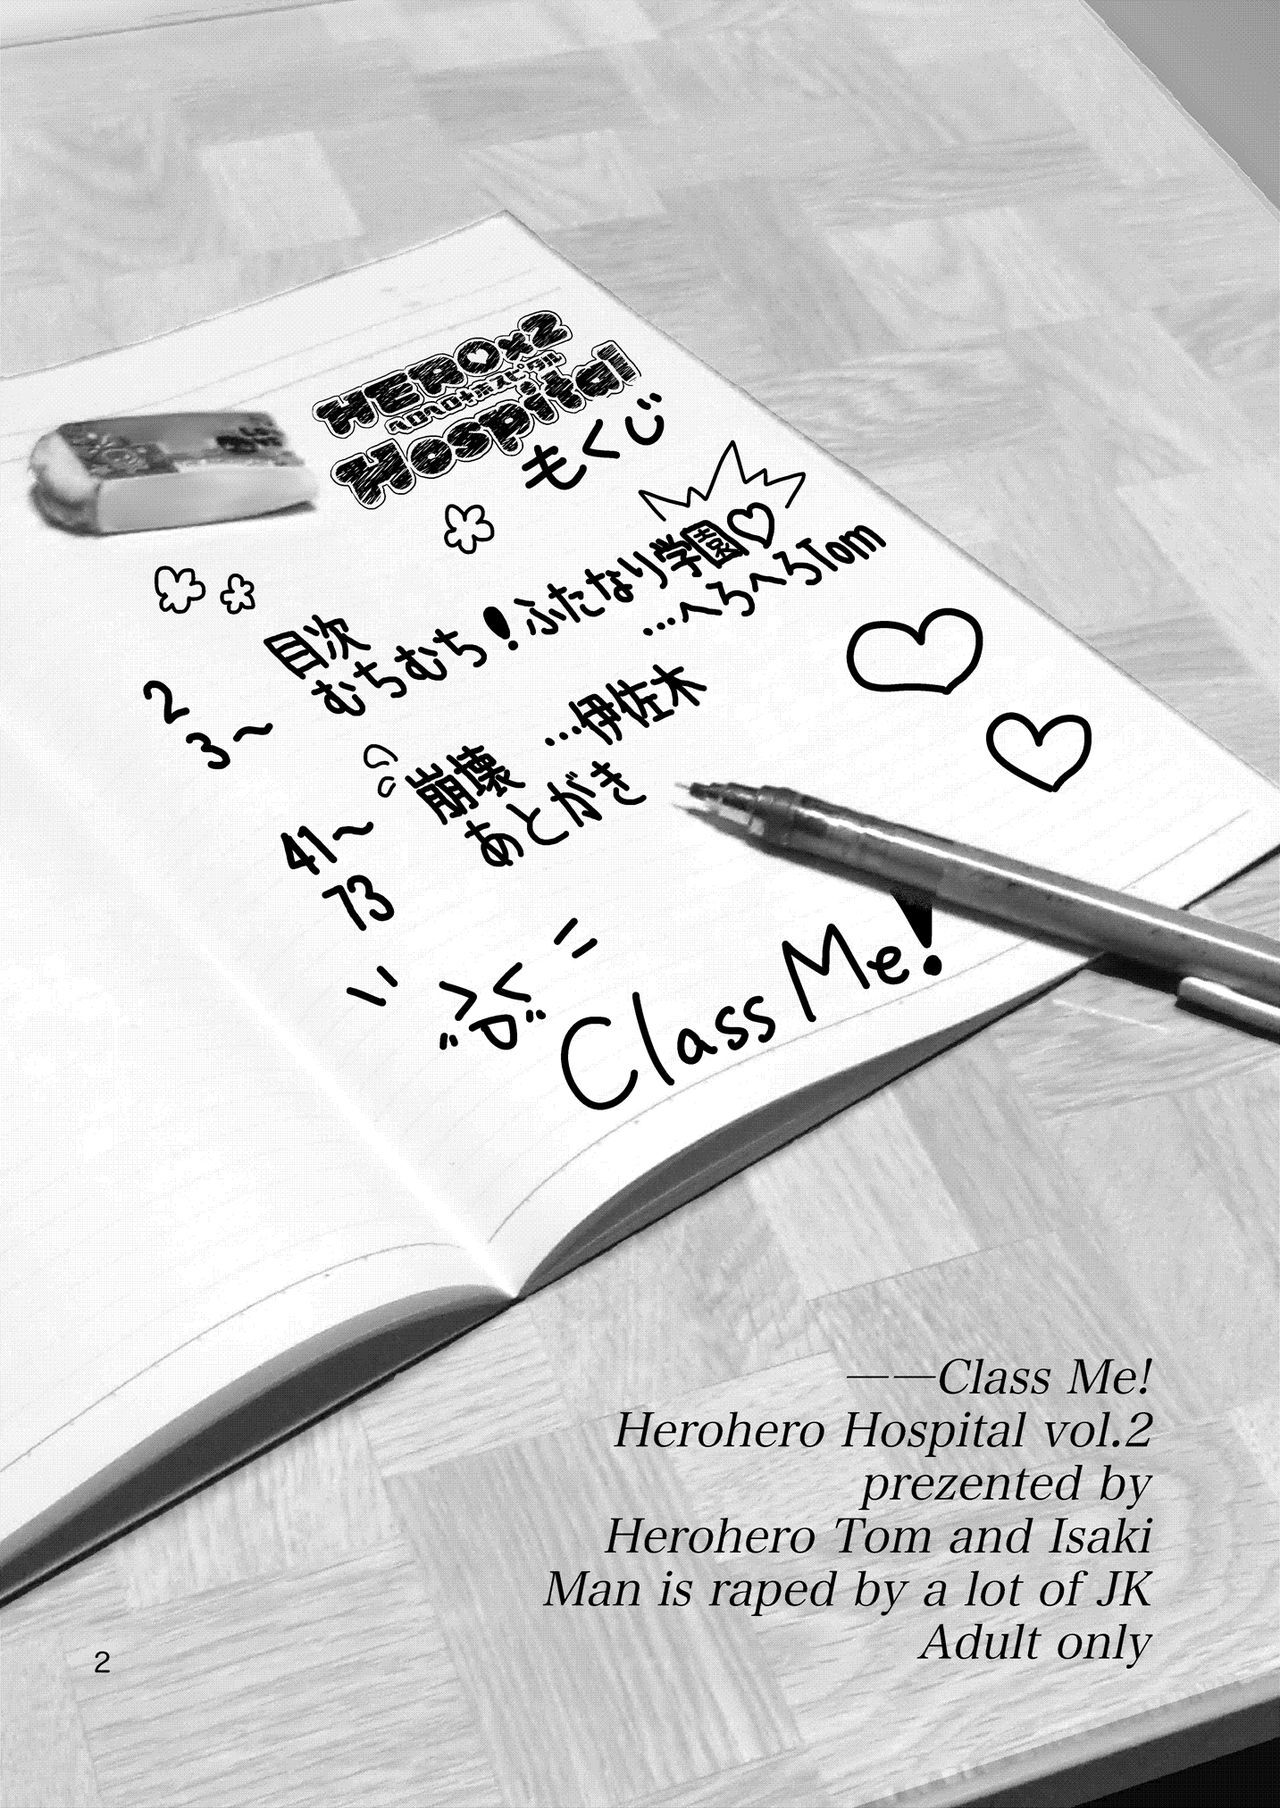 HERO×2
ヘロヘロホスピタル
Hospital
もくじ
2 目次
3〜 むちむち!ふたなり学園♡
…へろへろTom
41〜 崩壊 …伊佐木
73 あとがき
Class Me!
——Class Me!
Herohero Hospital vol.2
prezented by
Herohero Tom and Isaki
Man is raped by a lot of JK
Adult only
2